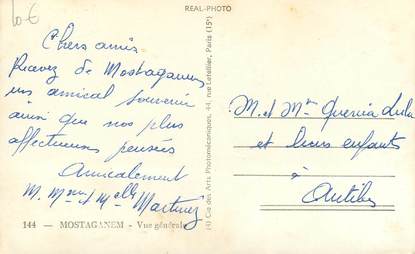 10-€
REAL-PHOTO
Chers amis
Recevez de Mostaganem
un amical souvenir
ainsi que nos plus
affectueuses pensées
Amicalement
M. Mme et Melle Martinez
144 — MOSTAGANEM - Vue générale
(4) Cie des Arts Photomécaniques, 44, rue Letellier, Paris (15e)
M. et Mme
et leurs enfants
à
Antibes